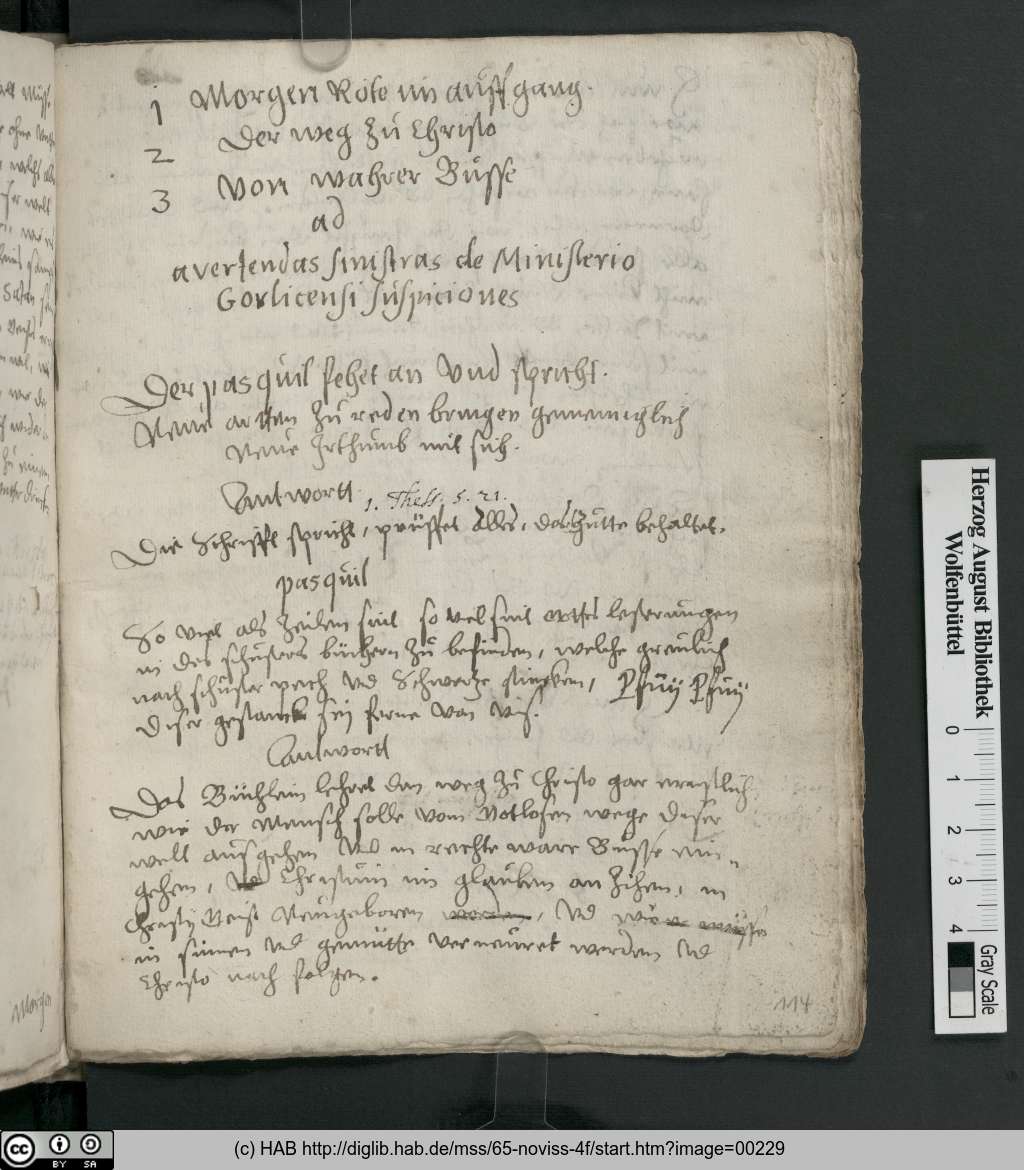 1 Morgen Röte im auffgang.
2 Der weg zu Christo
3 Von wahrer Busse
ad
avertendas sinistras de Ministerio
Gorlicensi suspiciones
Der pasquil fehet an Vnd spricht.
Neue artten zu reden bringen gemeiniglich
Neue Irthumb mit sich.
Antwortt.
1. Thess. 5. 21.
Die Schrifft spricht, prüffet alles, das gutte behaltet.
pasquil
So viel als Zeilen sint so viel sint Gottes lesterungen
in des schusters büchern zu befinden, welche greulich
nach schuster pech Vnd Schwertze stincken, Pfuy Pfuy
diser gestanck sey ferne Von vns.
Antwortt
Das Büchlein lehret den weg zu Christo gar ernstlich
wie der Mensch solle vom Gotlosen wege diser
welt ausgehen Vnd in rechte ware Busse ein-
gehen, Christum im glauben an Zihen, in
Christi Geist Neugeboren werden, Vnd
in sinnen Vnd gemütte verneuret werden Vnd
Christo nach folgen.
114
Morgen
Herzog August Bibliothek
Wolfenbüttel
0 1 2 3 4
Gray Scale
cc BY SA
(c) HAB http://diglib.hab.de/mss/65-noviss-4f/start.htm?image=00229